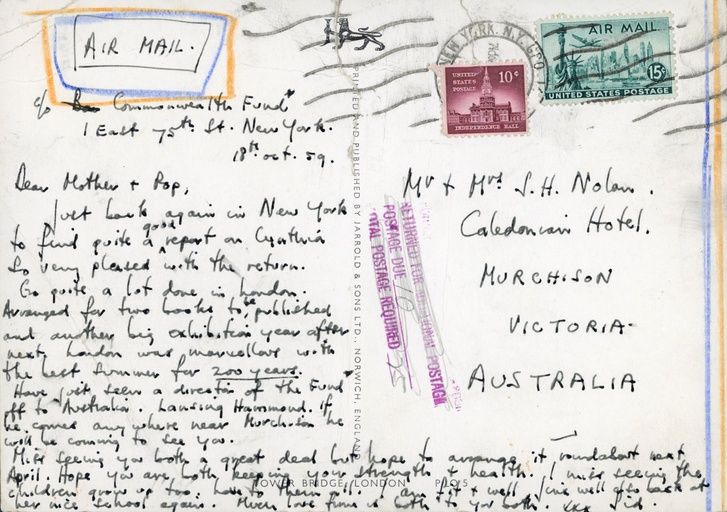 AIR MAIL.
c/o Commonwealth Fund
1 East 75th St. New York.
18th oct. 59.
Dear Mother + Pop,
Just back again in New York
to find quite a good report on Cynthia
So very pleased with the return.
Go quite a lot done in London.
Arranged for two books to be published
and another big exhibition year after
next. London was marvellous with
the best Summer for 200 years.
Have just seen a director of the Fund
off to Australia. Lansing Hammond. If
he comes any where near Murchison he
will be coming to see You.
Miss seeing you both a great deal but hope to arrange it roundabout next
April. Hope you are both keeping your strength + health. I miss seeing the
children grow up too. love to them all. I am fit + well. Jinx well + back at
her nice school again. Much love from us both to you both. xxx Sid.
PRINTED AND PUBLISHED BY JARROLD & SONS LTD., NORWICH, ENGLAND
TOWER BRIDGE, LONDON
NEW YORK, N.Y.
UNITED STATES POSTAGE
10¢
INDEPENDENCE HALL
AIR MAIL
15¢
UNITED STATES POSTAGE
RETURNED FOR POSTAGE
POSTAGE DUE 10
TOTAL POSTAGE REQUIRED 25
Mr + Mrs S. H. Nolan.
Caledonian Hotel.
MURCHISON
VICTORIA
AUSTRALIA